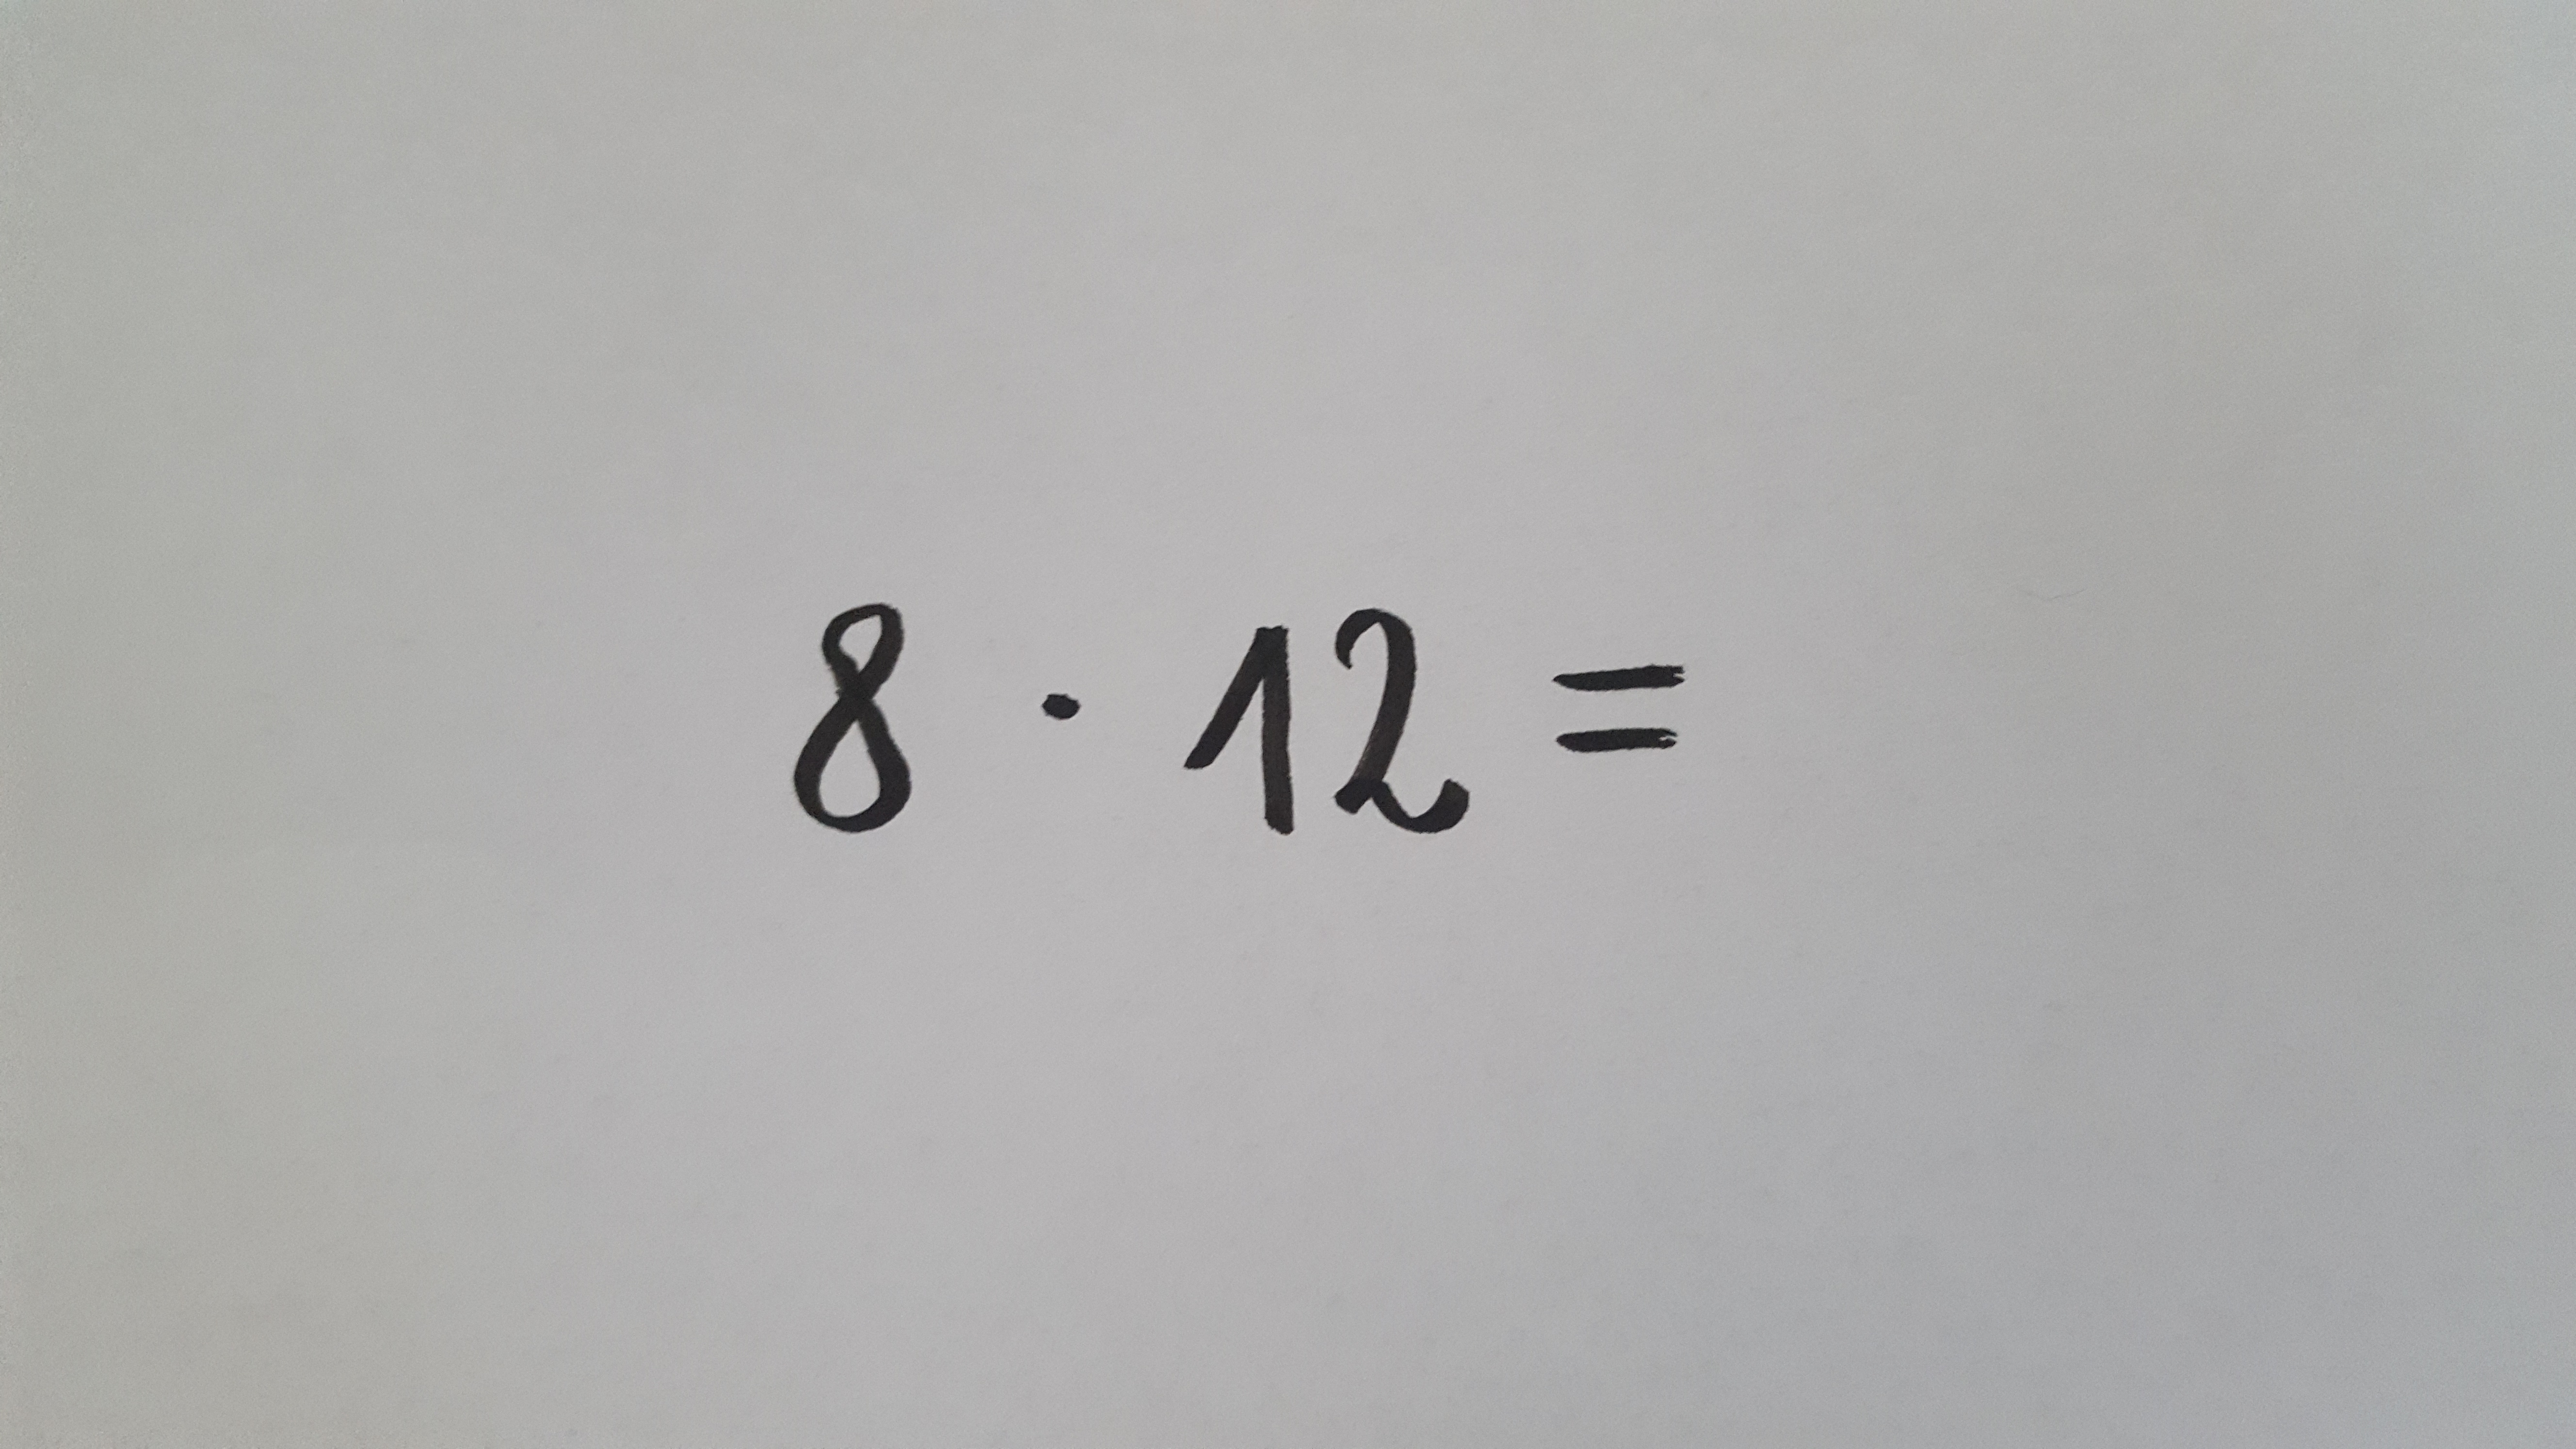 8 · 12 =